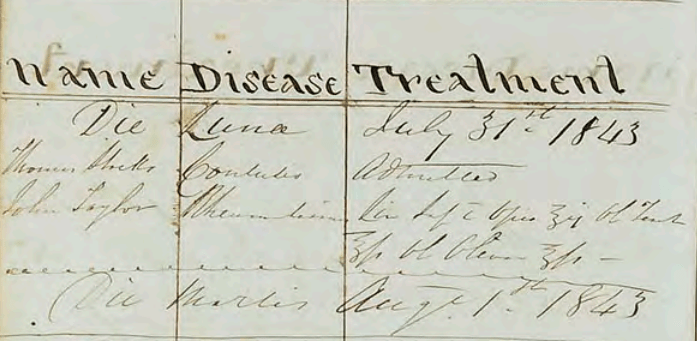 Name Disease Treatment
Die Luna July 31st 1843
Thomas Contusio Admitted
John Taylor Rheumatismus Lin Sap c Opio ʒij Ol
ʒss Ol Oliva ʒss –
Die Martis Augt. 1st 1843